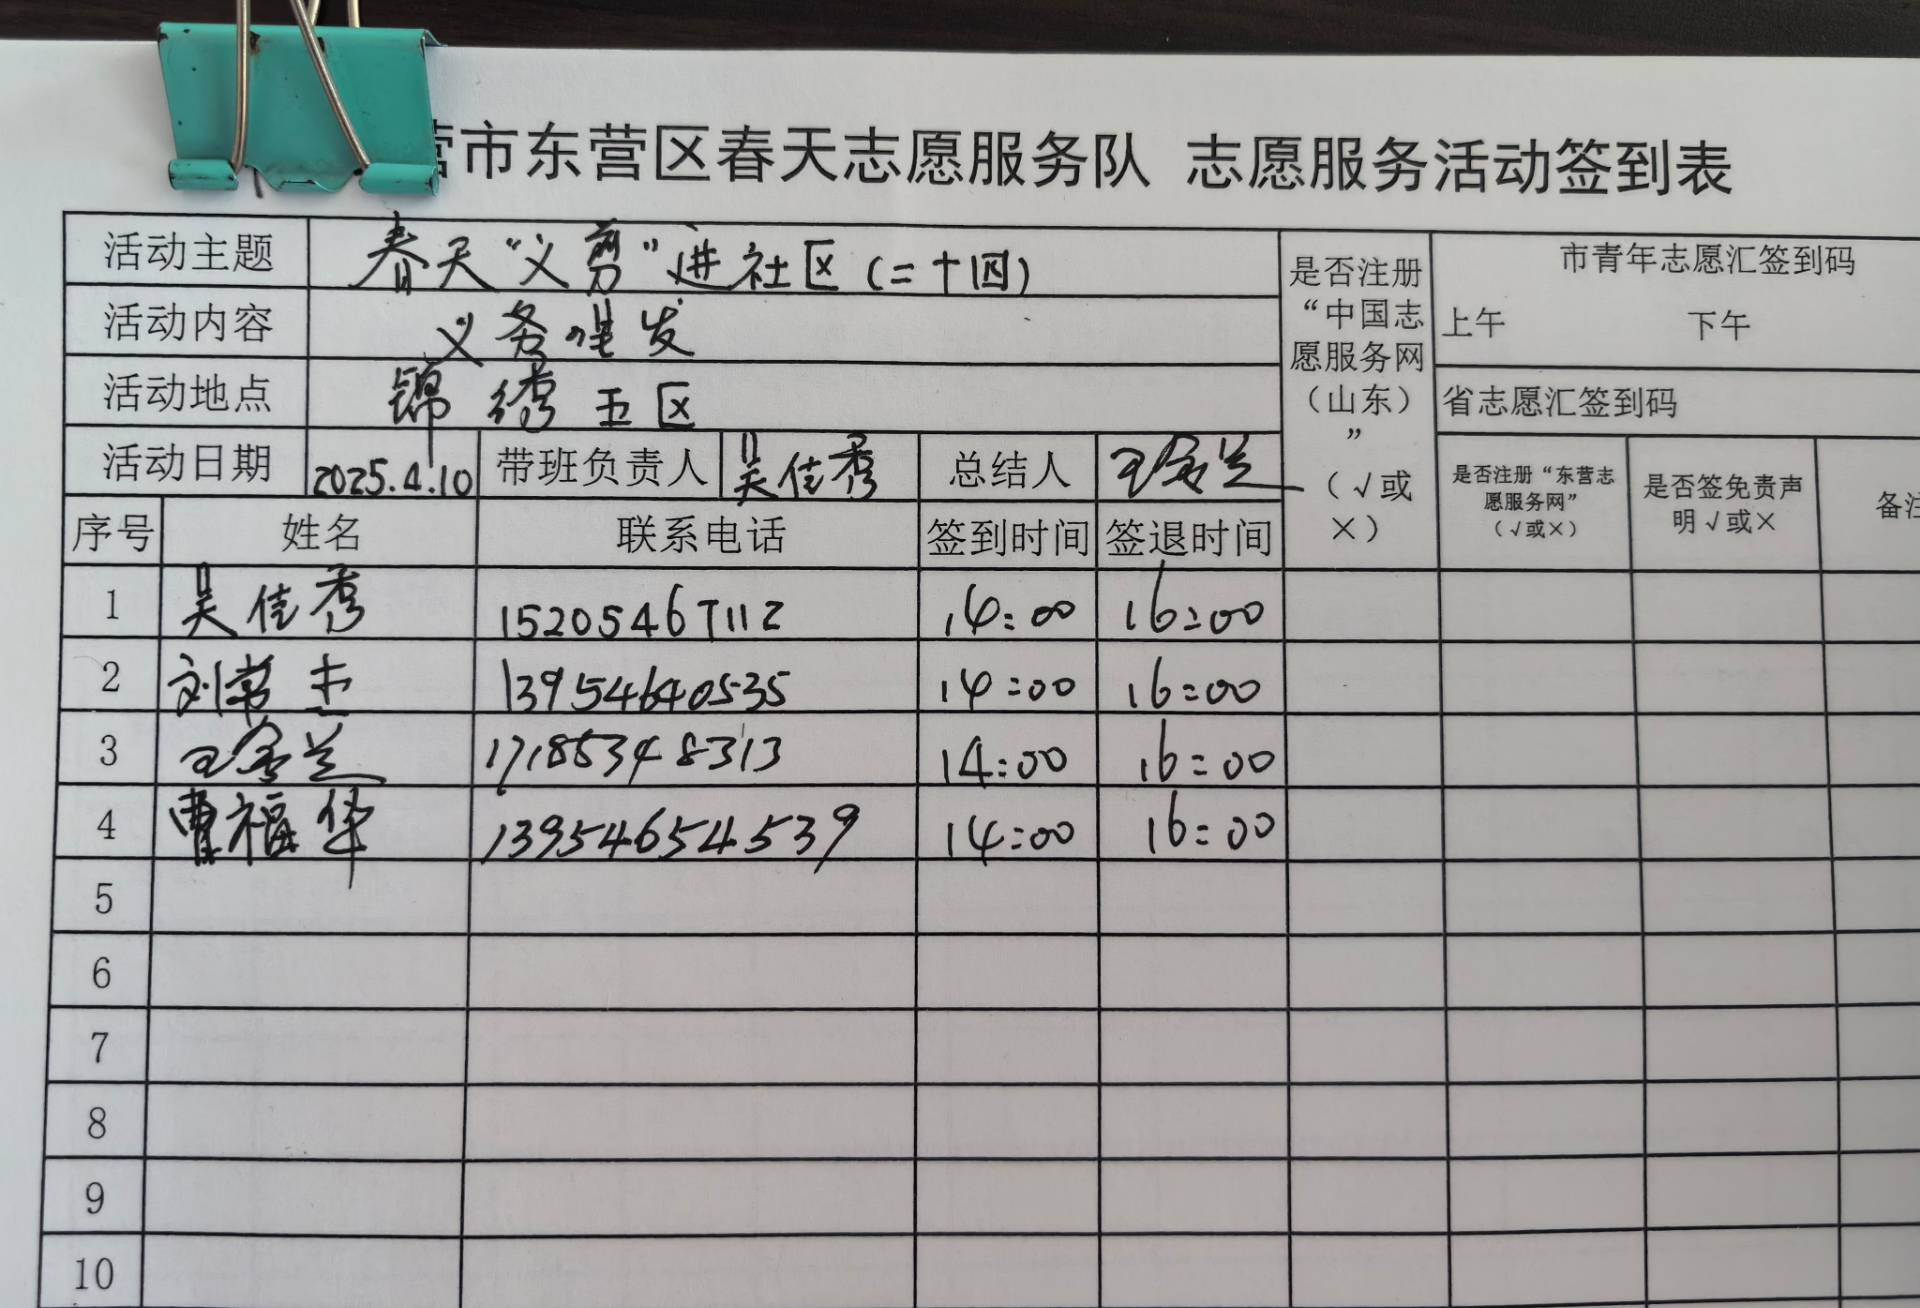 营市东营区春天志愿服务队 志愿服务活动签到表
活动主题 春天“义剪”进社区(二十四)
活动内容 义务理发
活动地点 锦绣五区
是否注册“中国志愿服务网（山东）”（√或×）
市青年志愿汇签到码
上午 下午
省志愿汇签到码
活动日期 2025.4.10 带班负责人 吴佳秀 总结人
序号 姓名 联系电话 签到时间 签退时间
是否注册“东营志愿服务网”（√或×）
是否签免责声明√或×
备注
1 吴佳秀 15205467112 14:00 16:00
2 刘常杰 13954640535 14:00 16:00
3 17185348313 14:00 16:00
4 曹福华 13954654539 14:00 16:00
5
6
7
8
9
10